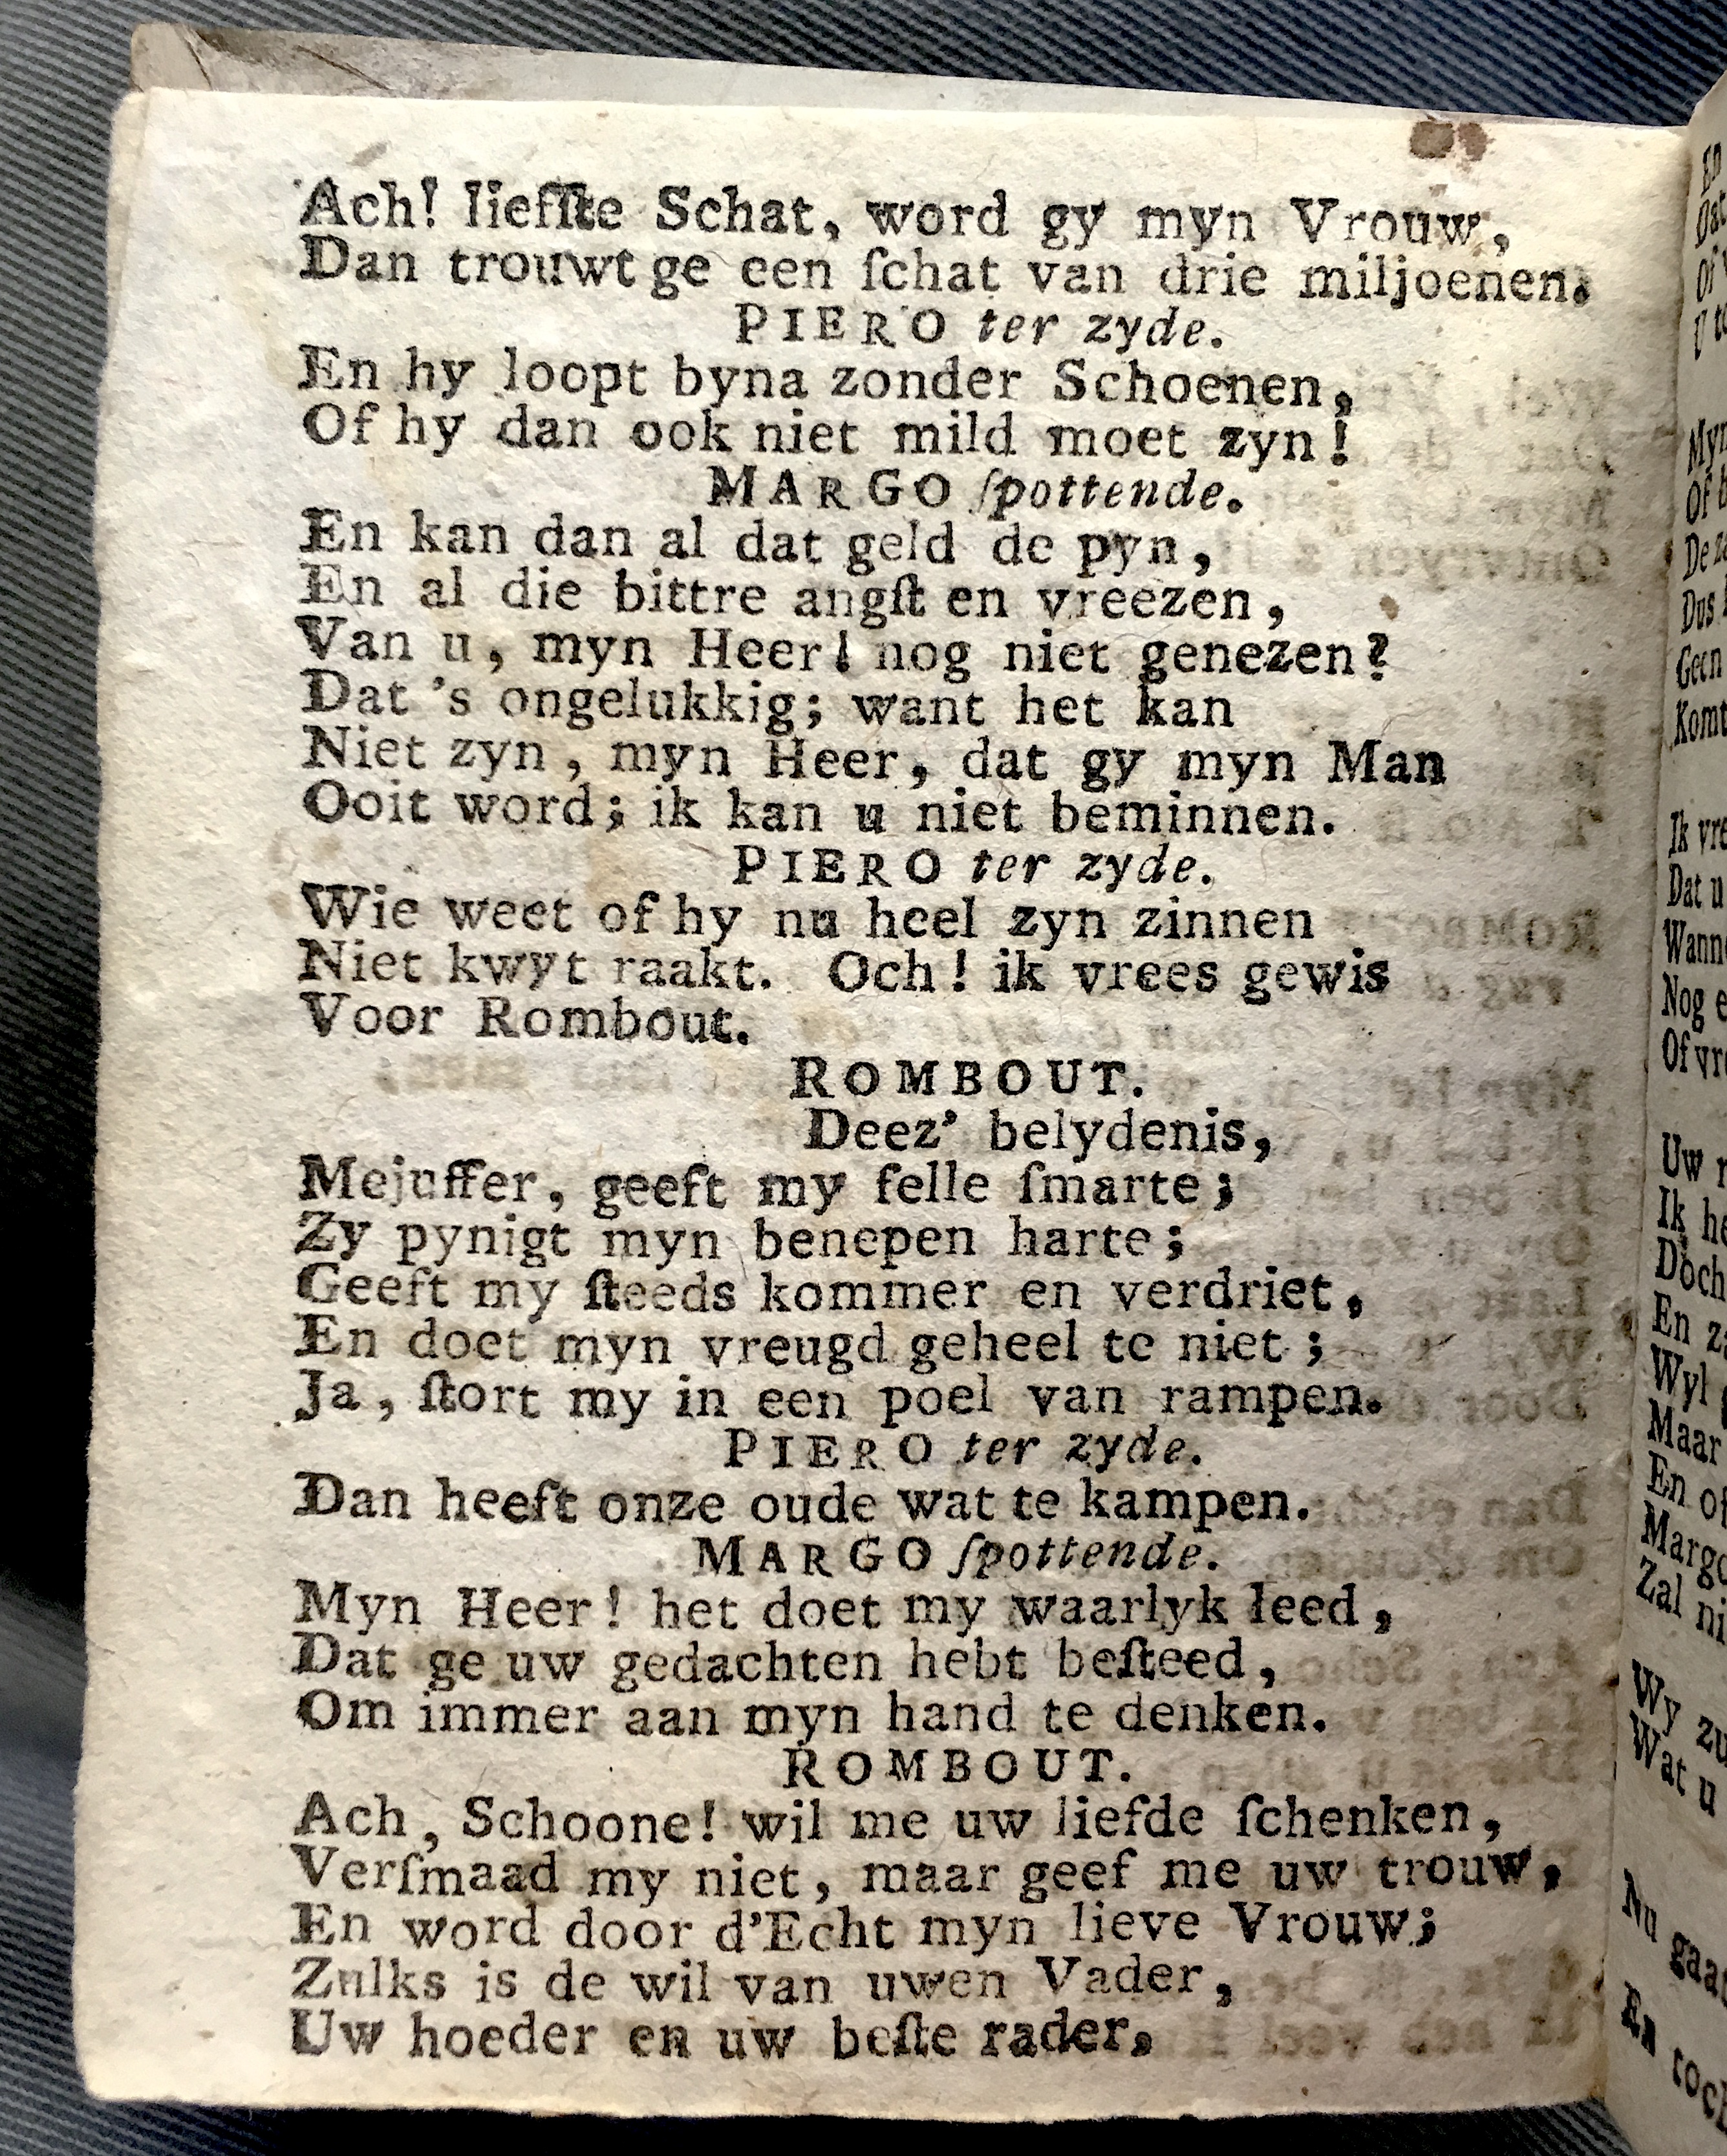 Ach! liefſte Schat, word gy myn Vrouw,
Dan trouwt ge een ſchat van drie miljoenen.
PIERO ter zyde.
En hy loopt byna zonder Schoenen,
Of hy dan ook niet mild moet zyn!
MARGO ſpottende.
En kan dan al dat geld de pyn,
En al die bittre angſt en vreezen,
Van u, myn Heer! nog niet genezen?
Dat 's ongelukkig; want het kan
Niet zyn, myn Heer, dat gy myn Man
Ooit word; ik kan u niet beminnen.
PIERO ter zyde.
Wie weet of hy nu heel zyn zinnen
Niet kwyt raakt. Och! ik vrees gewis
Voor Rombout.
ROMBOUT.
Deez' belydenis,
Mejuffer, geeft my felle ſmarte;
Zy pynigt myn benepen harte;
Geeft my ſteeds kommer en verdriet,
En doet myn vreugd geheel te niet;
Ja, ſtort my in een poel van rampen.
PIERO ter zyde.
Dan heeft onze oude wat te kampen.
MARGO ſpottende.
Myn Heer! het doet my waarlyk leed,
Dat ge uw gedachten hebt beſteed,
Om immer aan myn hand te denken.
ROMBOUT.
Ach, Schoone! wil me uw liefde ſchenken,
Verſmaad my niet, maar geef me uw trouw,
En word door d'Echt myn lieve Vrouw;
Zulks is de wil van uwen Vader,
Uw hoeder en uw beſte rader.
En
Dat
Of
U
Myn
Of
De
Dus
Geen
Komt
Ik
Dat u
Nog
Of
Uw
Ik
Doch
En
Wyl
Maar
En
Margo
Zal
Wy
Wat u
Nu
En